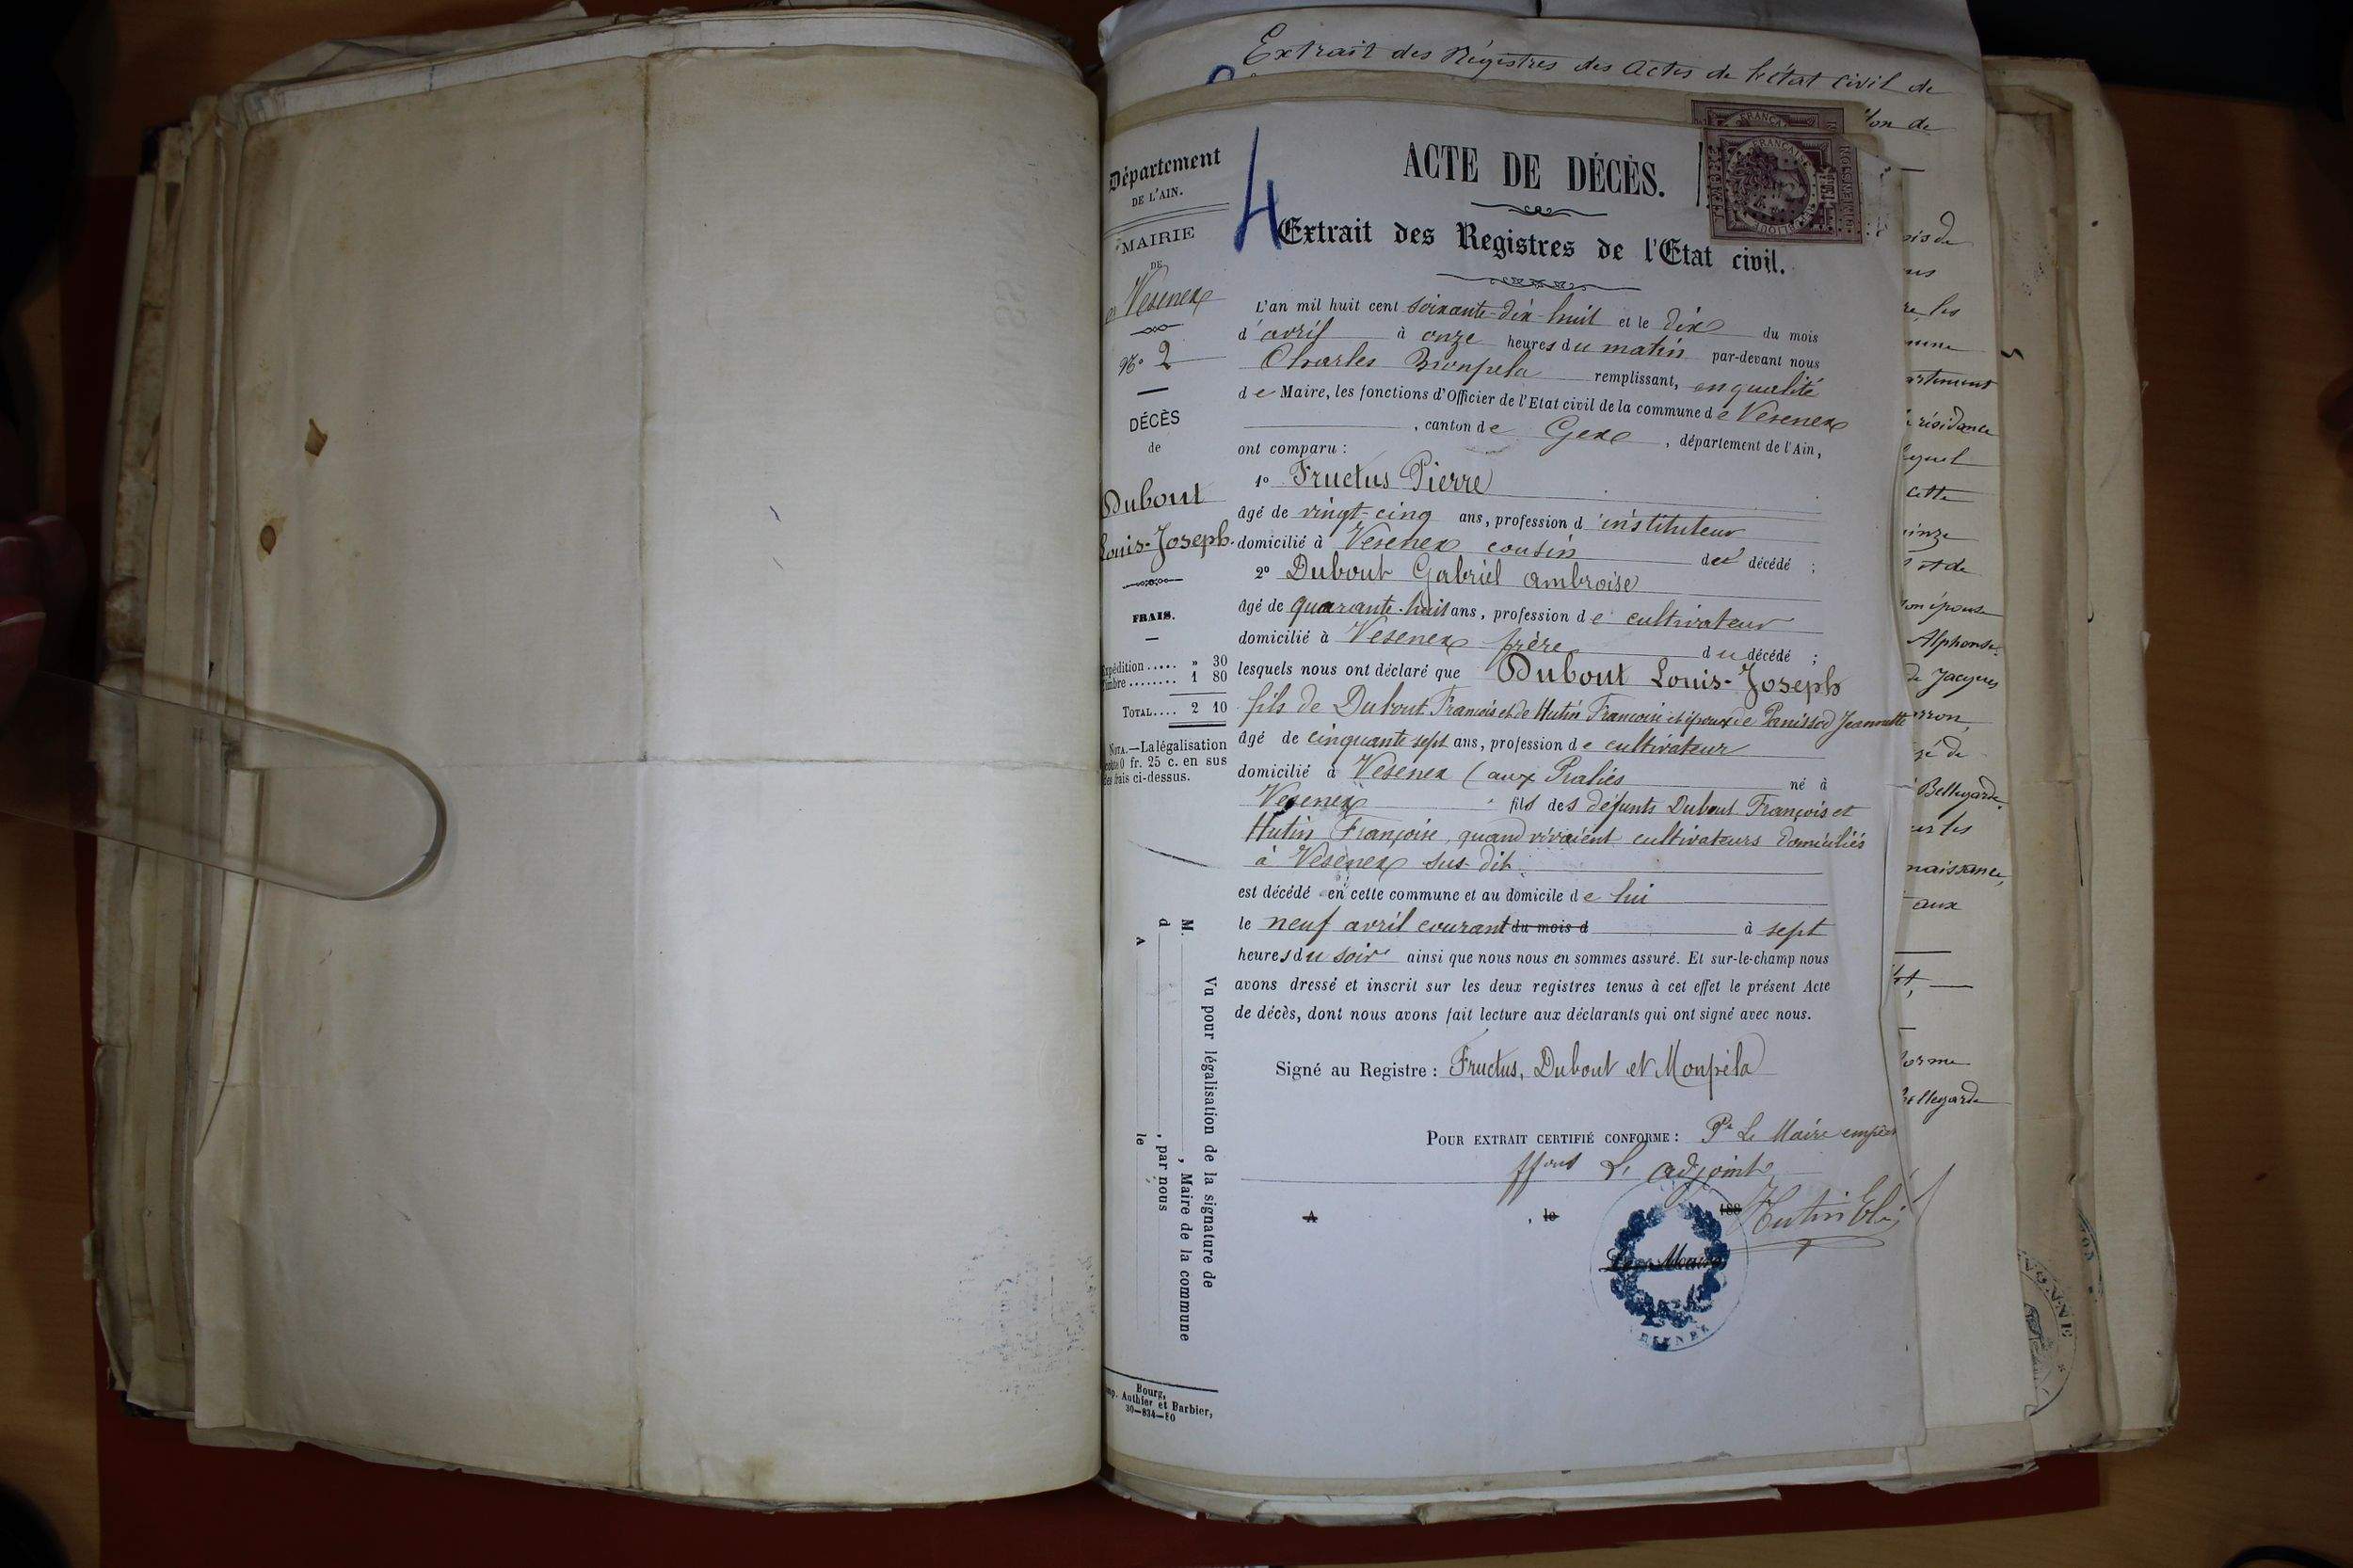 Extrait des Régistres des Actes de l'état civil de
Département
DE L'AIN.
MAIRIE
DE
Vesenex
N.º 2
DÉCÈS
de
Dubout
Louis-Joseph.
FRAIS.
Expédition..... » 30
Timbre........ 1 80
TOTAL.... 2 10
NOTA.—La légalisation
coûte 0 fr. 25 c. en sus
des frais ci-dessus.
4
ACTE DE DÉCÈS.
Extrait des Registres de l'Etat civil.
L'an mil huit cent soixante-dix-huit et le dix du mois
d'avril à onze heures du matin par-devant nous
Charles Monpela remplissant, en qualité
de Maire, les fonctions d'Officier de l'Etat civil de la commune de Vesenex
, canton de Gex , département de l'Ain,
ont comparu :
1º Fructus Pierre
âgé de vingt-cinq ans, profession d'instituteur
domicilié à Vesenex cousin du décédé ;
2º Dubout Gabriel Ambroise
âgé de quarante-huit ans, profession de cultivateur
domicilié à Vesenex frère du décédé ;
lesquels nous ont déclaré que Dubout Louis-Joseph
fils de Dubout François et de Hutin Françoise et époux de Panissod Jeannette
âgé de cinquante sept ans, profession de cultivateur
domicilié à Vesenex (aux Pralies né à
Vesenex fils des défunts Dubout François et
Hutin Françoise, quand vivaient cultivateurs domiciliés
à Vésenex sus-dit
est décédé en cette commune et au domicile de lui
le neuf avril courant du mois d à sept
heures du soir ainsi que nous nous en sommes assuré. Et sur-le-champ nous
avons dressé et inscrit sur les deux registres tenus à cet effet le présent Acte
de décès, dont nous avons fait lecture aux déclarants qui ont signé avec nous.
Signé au Registre : Fructus, Dubout et Monpéla
POUR EXTRAIT CERTIFIÉ CONFORME : Pr Le Maire
L'adjoint
A , le 188 Hutin
Le Maire
Vu pour légalisation de la signature de
M. , Maire de la commune
d , par nous
A le
Bourg,
imp. Authier et Barbier,
30—834—80
ton de
résidence
cette
et de
Alphonse
de Jacques
Bellegarde
naissance,
aux
Bellegarde